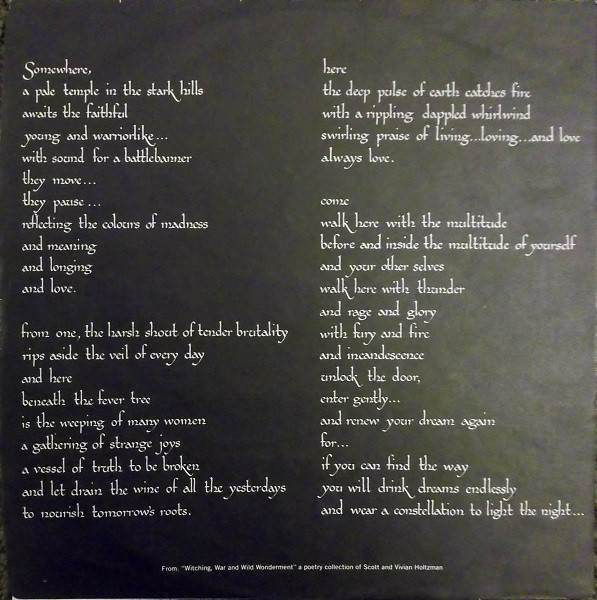 Somewhere,
a pale temple in the stark hills
awaits the faithful
young and warriorlike...
with sound for a battlebanner
they move...
they pause...
reflecting the colours of madness
and meaning
and longing
and love.
from one, the harsh shout of tender brutality
rips aside the veil of every day
and here
beneath the fever tree
is the weeping of many women
a gathering of strange joys
a vessel of truth to be broken
and let drain the wine of all the yesterdays
to nourish tomorrow's roots.
here
the deep pulse of earth catches fire
with a rippling dappled whirlwind
swirling praise of living...loving...and love
always love.
come
walk here with the multitude
before and inside the multitude of yourself
and your other selves
walk here with thunder
and rage and glory
with fury and fire
and incandescence
unlock the door,
enter gently...
and renew your dream again
for...
if you can find the way
you will drink dreams endlessly
and wear a constellation to light the night...
From: "Witching, War and Wild Wonderment" a poetry collection of Scott and Vivian Holtzman